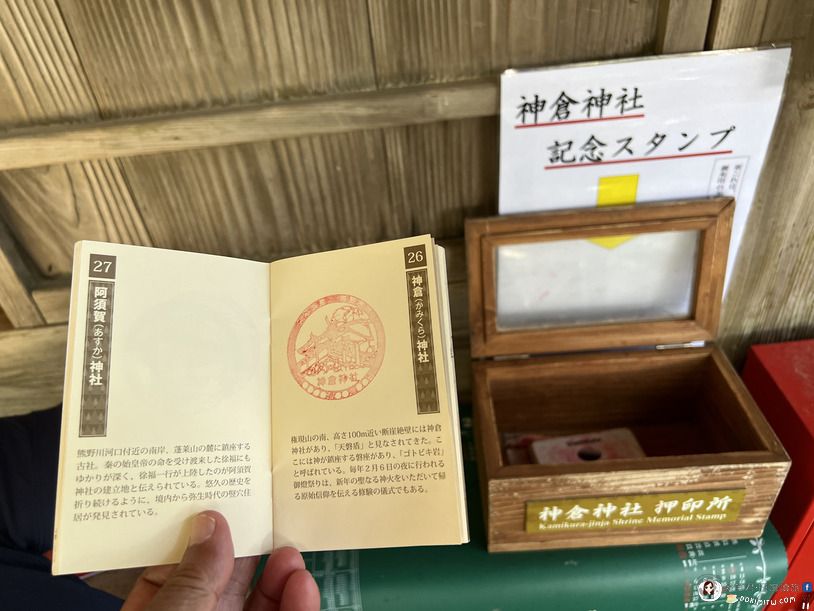 神倉神社
記念スタンプ
27
阿須賀(あすか)神社
熊野川河口付近の南岸、蓬莱山の麓に鎮座する
古社。秦の始皇帝の命を受け渡来した徐福にも
ゆかりが深く、徐福一行が上陸したのが阿須賀
神社の建立地と伝えられている。悠久の歴史を
折り続けるように、境内から弥生時代の竪穴住
居が発見されている。
26
神倉(かみくら)神社
神倉神社
権現山の南、高さ100m近い断崖絶壁には神倉
神社があり、「天磐盾」と見なされてきた。こ
こには神が鎮座する磐座があり、「ゴトビキ岩」
と呼ばれている。毎年2月6日の夜に行われる
御燈祭りは、新年の聖なる神火をいただいて帰
る原始信仰を伝える修験の儀式でもある。
神倉神社 押印所
Kamikura-jinja Shrine Memorial Stamp